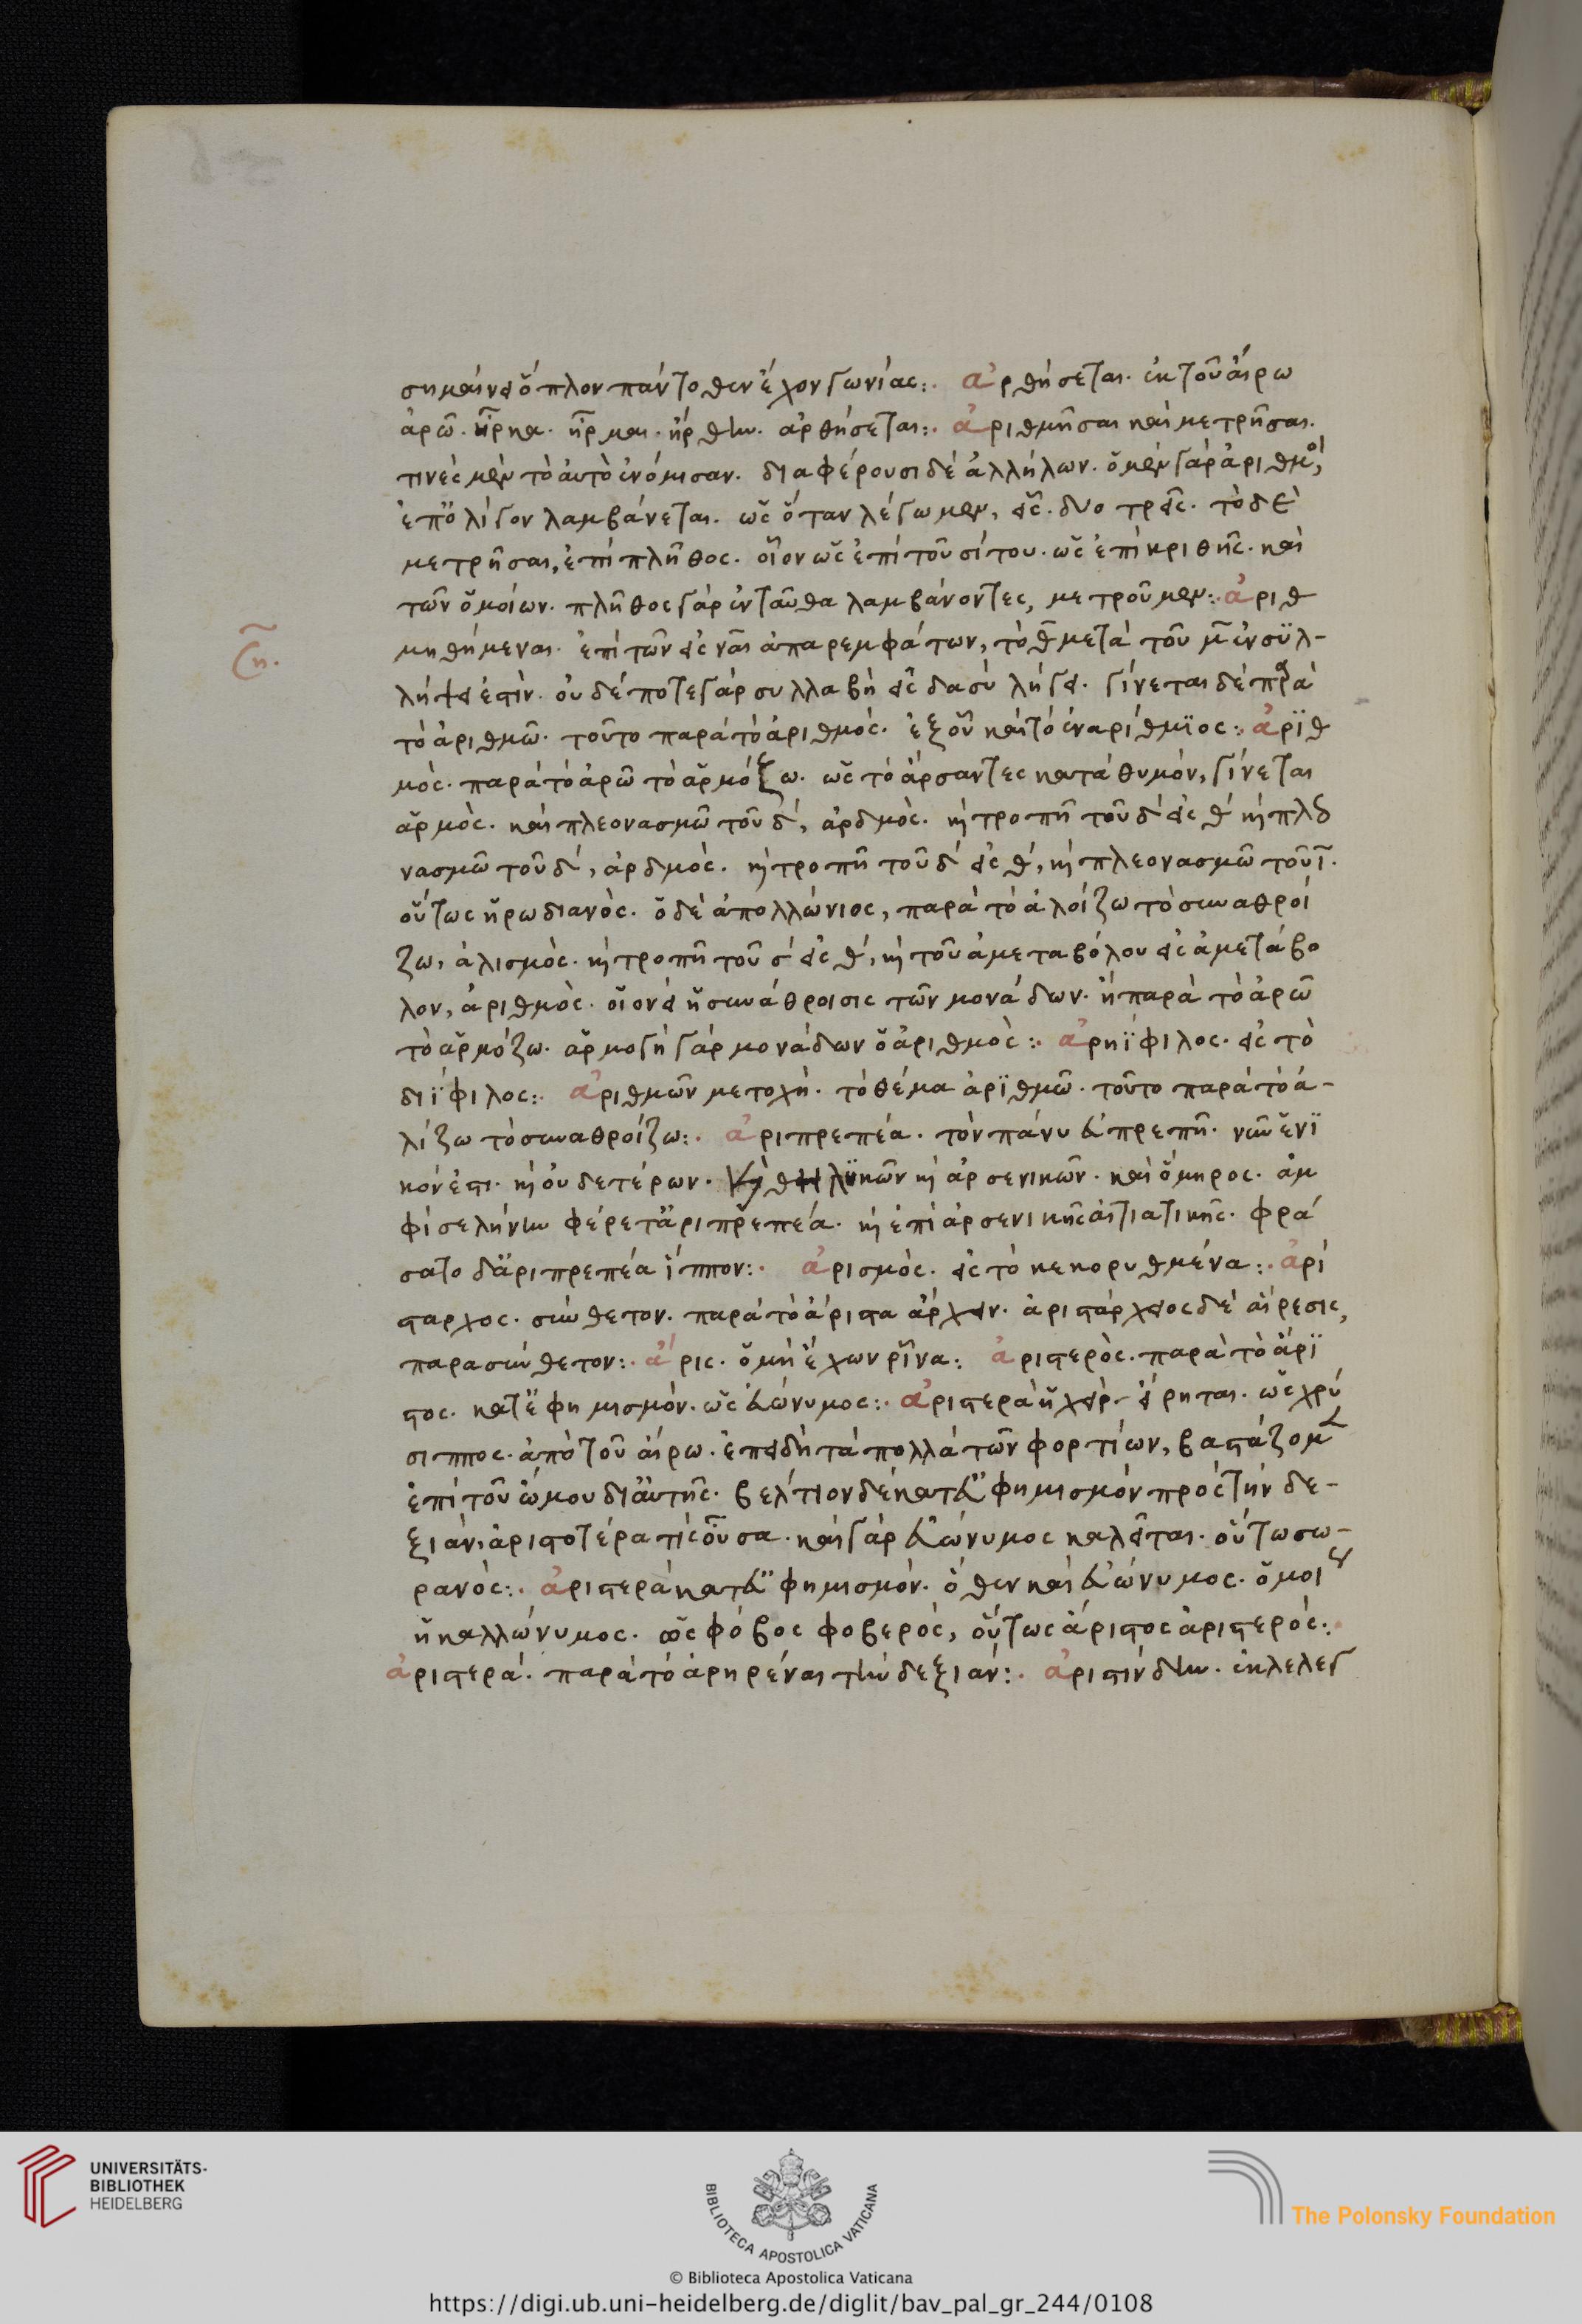 σημαίνει ὅπλον πάντοθεν ἔχον γωνίας:· ἀρθήσεται· ἐκ τοῦ αἴρω
ἀρῶ· ἦρκα· ἦρμαι· ἤρθην· ἀρθήσεται:· ἀριθμῆσαι καὶ μετρῆσαι·
τινὲς μὲν τὸ αὐτὸ ἐνόμισαν· διαφέρουσι δὲ ἀλλήλων· ὁ μὲν γὰρ ἀριθμὸς,
ἐπὀλίγον λαμβάνεται· ὡς ὅταν λέγωμεν, εἷς· δυο τρεῖς· τὸ δὲ
μετρῆσαι, ἐπὶ πλῆθος· οἷον ὡς ἐπὶ τοῦ σίτου· ὡς ἐπὶ κριθῆς· καὶ
τῶν ὁμοίων· πλῆθος γὰρ ἐνταῦθα λαμβάνοντες, μετροῦμεν:· ἀριθ
μηθήμεναι· ἐπὶ τῶν εἰς ναι ἀπαρεμφάτων, τὸ θ μετὰ τοῦ μ ἐν συλ-
λήψει ἐστὶν· οὐδέποτε γὰρ συλλαβὴ εἰς δασὺ λήγει· γίνεται δὲ παρὰ
τὸ ἀριθμῶ· τοῦτο παρὰ τὸ ἀριθμός· ἐξ οὗ καὶ τὸ ἐναρίθμϊος:· ἀρϊθ
μὸς· παρὰ τὸ ἀρῶ τὸ ἁρμόζω· ὡς τὸ ἄρσαντες κατὰ θυμόν, γίνεται
ἁρμὸς· καὶ πλεονασμῶ τοῦ δ, ἀρδμὸς· κὴ τροπῆ τοῦ δ εἰς θ κὴ πλεο
νασμῶ τοῦ δ, ἀρδμὸς· κὴ τροπῆ τοῦ δ εἰς θ, κὴ πλεονασμῶ τοῦ ι·
οὕτως ἡρωδιανὸς· ὁ δὲ ἀπολλώνιος, παρὰ τὸ ἁλοίζω τὸ συναθροί
ζω, ἁλισμὸς· κὴ τροπῆ τοῦ σ εἰς θ, κὴ τοῦ ἀμεταβόλου εἰς ἀμετάβο
λον, ἀριθμὸς· οἱονεὶ ἡ συνάθροισις τῶν μονάδων· ἢ παρὰ τὸ ἀρῶ
τὸ ἁρμόζω· ἁρμογὴ γὰρ μονάδων ὁ ἀριθμὸς:· ἀρηΐφιλος· εἰς τὸ
διΐφιλος:· ἀριθμῶν μετοχὴ· τὸ θέμα ἀρϊθμῶ· τοῦτο παρὰ τὸ ἁ-
λίζω τὸ συναθροίζω:· ἀριπρεπέα· τὸν πάνυ εὐπρεπῆ· νῦν ἑνϊ
κόν ἐστι· κὴ οὐδετέρων· κὴ θηλυκῶν κὴ ἀρσενικῶν· καὶ ὅμηρος· ἀμ
φὶ σελήνην φέρετἀριπρεπέα· κὴ ἐπὶ ἀρσενικῆς αἰτιατικῆς· φρά
σατο δἀριπρεπέα ἵππον:· ἀρισμὸς· εἰς τὸ κεκορυθμένα:· ἀρί
σταρχος· σύνθετον· παρὰ τὸ ἄριστα ἄρχειν· ἀριστάρχειος δὲ αἵρεσις,
παρασύνθετον:· ἄρις· ὁ μὴ ἔχων ῥῖνα: ἀριστερὸς· παρὰ τὸ ἄρϊ
στος· κατεὐφημισμόν· ὡς εὐώνυμος:· ἀριστερὰ ἡ χεὶρ εἴρηται· ὡς χρύ
σιππος· ἀπὸ τοῦ αἴρω· ἐπειδὴ τὰ πολλὰ τῶν φορτίων, βαστάζομεν
ἐπὶ τοῦ ὤμου διαὐτῆς· βελτιον δὲ κατεὐφημισμὸν πρὸς τὴν δε-
ξιὰν, ἀριστοτέρα τὶς οὖσα· καὶ γὰρ εὐώνυμος καλεῖται· οὕτω σω-
ρανὸς:· ἀριστερὰ κατεὐφημισμόν· ὅθεν καὶ εὐώνυμος· ὅμοιον
ἢ καλλώνυμος· ὡς φόβος φοβερός, οὕτως ἄριστος ἀριστερός:·
ἀριστερά· παρὰ τὸ ἀρηρέναι τὴν δεξιάν:· ἀριστίνδην· ἐκλελεγ
ση·
UNIVERSITÄTS-
BIBLIOTHEK
HEIDELBERG
BIBLIOTECA APOSTOLICA VATICANA
The Polonsky Foundation
© Biblioteca Apostolica Vaticana
https://digi.ub.uni-heidelberg.de/diglit/bav_pal_gr_244/0108